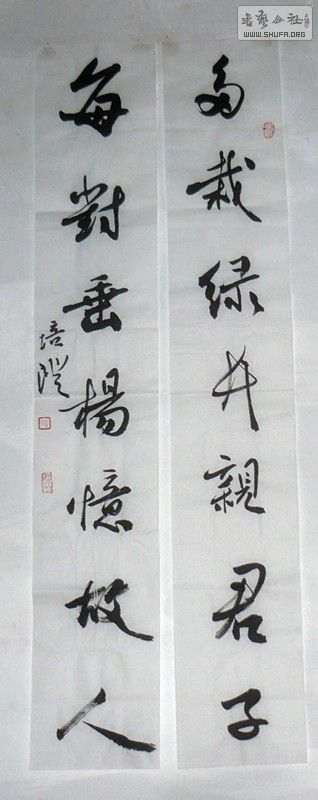 多栽绿井親君子
每對垂楊憶故人
培
書藝公社
WWW.SHUFA.ORG